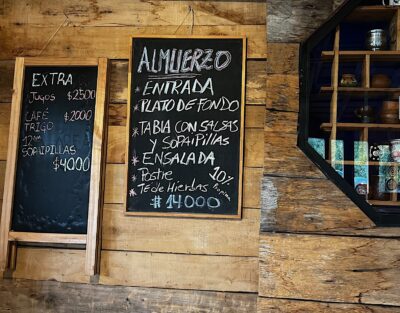 EXTRA
Jugos $2500
CAFÉ $2000
TRIGO
SOPAIPILLAS
$4000
ALMUERZO
* ENTRADA
* PLATO DE FONDO
* TABLA CON SALSAS
Y SOPAIPILLAS
* ENSALADA
* Postre 10%
* Té de Hierbas Propina
$14.000